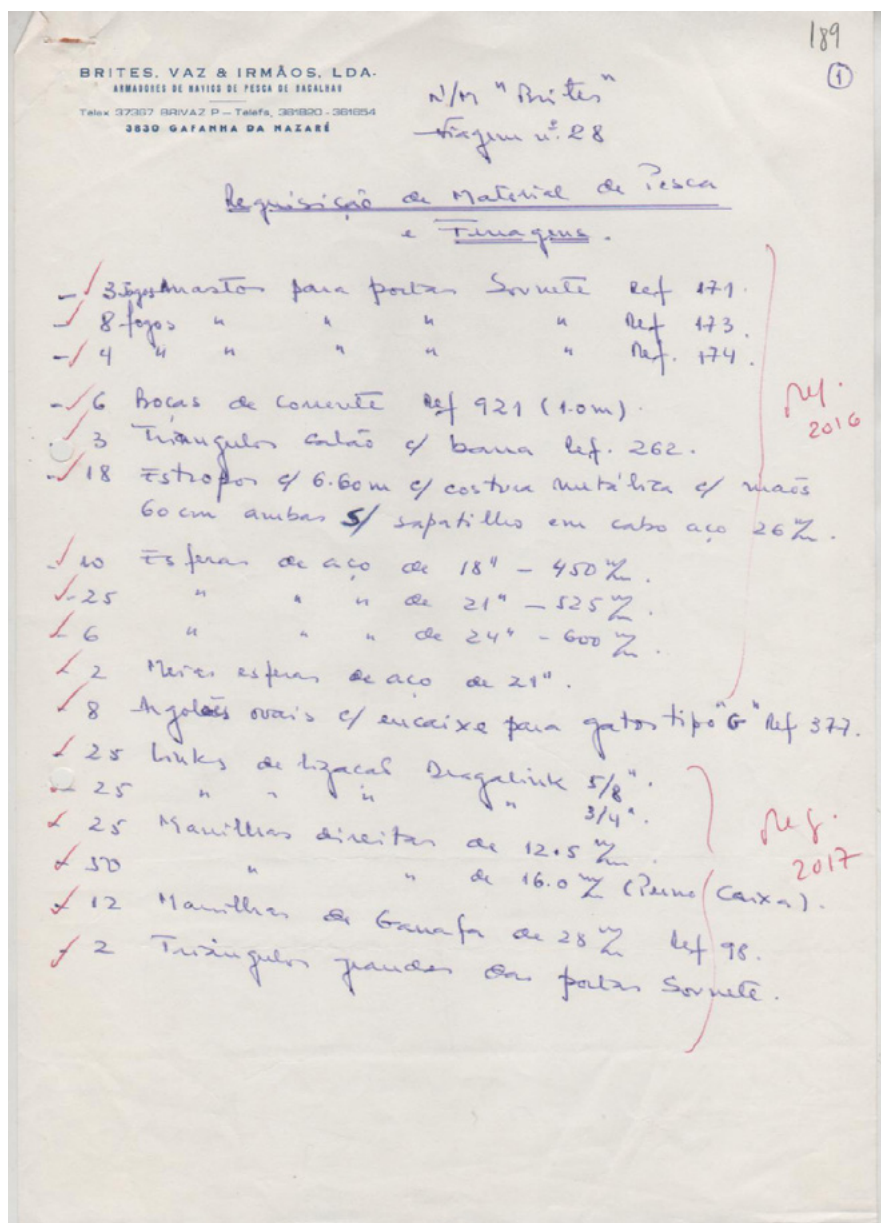 189
1
BRITES, VAZ & IRMÃOS, LDA.
ARMADORES DE NAVIOS DE PESCA DE BACALHAU
Telex 37367 BRIVAZ P — Telefs, 361820 - 361654
3830 GAFANHA DA NAZARÉ
N/M "Brites"
Viagem nº. 28
Requisição de Material de Pesca
e Ferragens.
- 3 jogos Mastros para portas Sovnete Ref 171.
- 8 jogos " " " " Ref 173.
- 4 " " " " " Ref. 174.
- 6 Bocas de corrente Ref 921 (1.0m).
- 3 Triangulos calão c/ barra Ref. 262.
- 18 Estropos c/ 6.60m c/ costura metálica c/ mãos
60 cm ambas S/ sapatilho em cabo aço 26 m/m.
- 10 Esferas de aço de 18" - 450 m/m.
- 25 " " " de 21" - 525 m/m.
- 6 " " " de 24" - 600 m/m.
- 2 Meias esferas de aço de 21".
- 8 Argolões ovais c/ encaixe para gatos tipo "G" Ref 377.
- 25 Links de ligação Dragalink 5/8".
- 25 " " " " 3/4".
- 25 Manilhas direitas de 12.5 m/m.
- 50 " " de 16.0 m/m (Perno Caixa).
- 12 Manilhas de Garrafa de 28 m/m Ref 98.
- 2 Triângulos grandes das portas Sovnete.
Ref.
2016
Ref.
2017